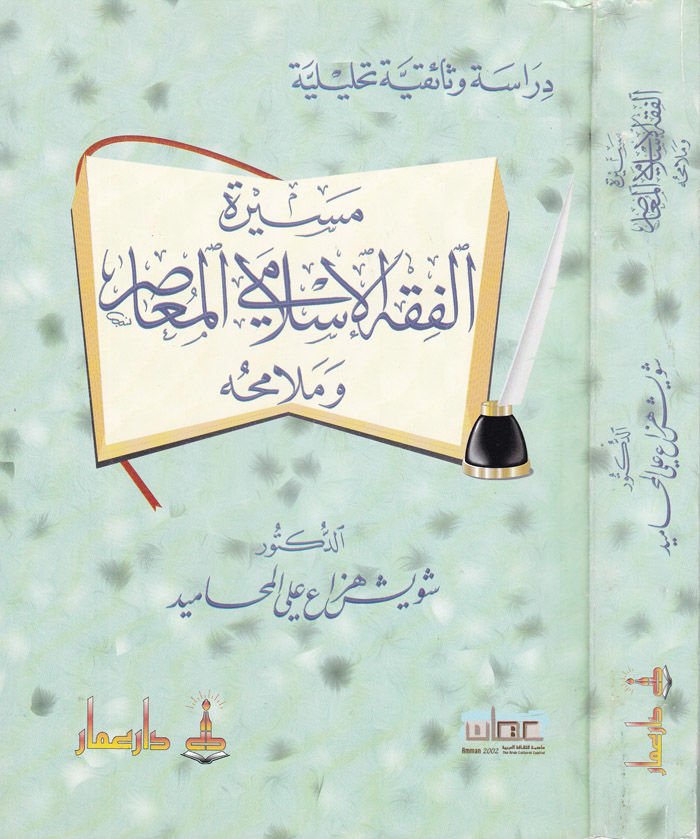 دِرَاسَة وَثَائقيَّة تَحْليْليَّة
مَسيْرَة
اَلفِقْه الإِسْلَامِي المُعَاصِر
وَمَلامِحُه
اَلدُّكتُور
شويش هزاع علي المحاميد
دار عمار
عمان
عاصمة الثقافة العربية
Amman 2002 The Arab Cultural Capital
مَسيْرَة
اَلفِقْه الإِسْلَامِي المُعَاصِر
وَمَلامِحُه
اَلدُّكتُور
شويش هزاع علي المحاميد
دار عمار